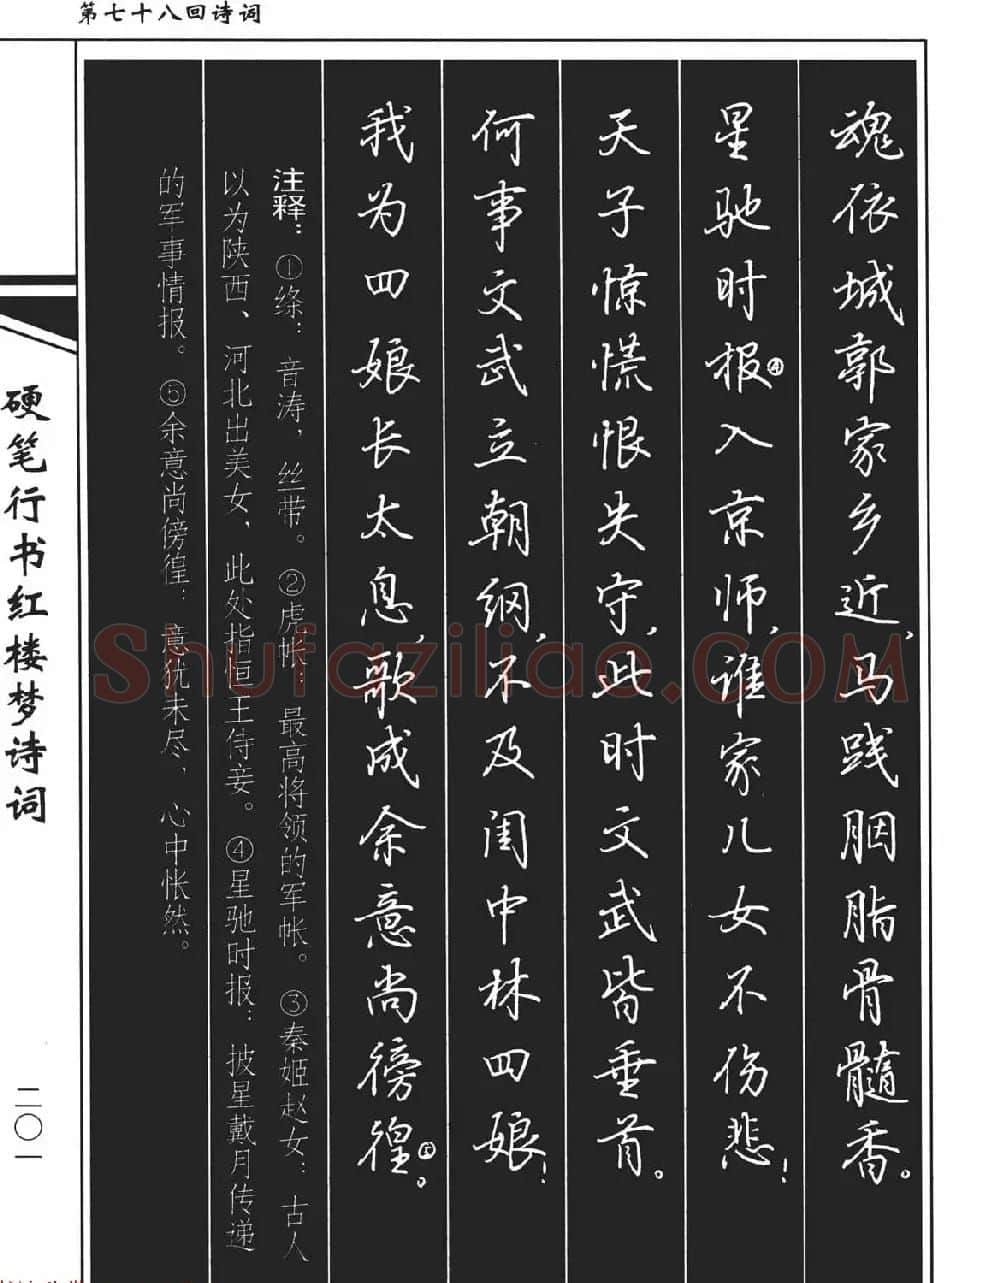 第七十八回诗词
魂依城郭家乡近，马践胭脂骨髓香。
星驰时报④入京师，谁家儿女不伤悲！
天子惊慌恨失守，此时文武皆垂首。
何事文武立朝纲，不及闺中林四娘！
我为四娘长太息，歌成余意尚徬徨⑤。
注释：①绦：音涛，丝带。②虎帐：最高将领的军帐。③秦姬赵女：古人
以为陕西、河北出美女，此处指恒王侍妾。④星驰时报：披星戴月传递
的军事情报。⑤余意尚傍徨：意犹未尽，心中怅然。
硬笔行书红楼梦诗词
二〇一
Shufaziliao.COM